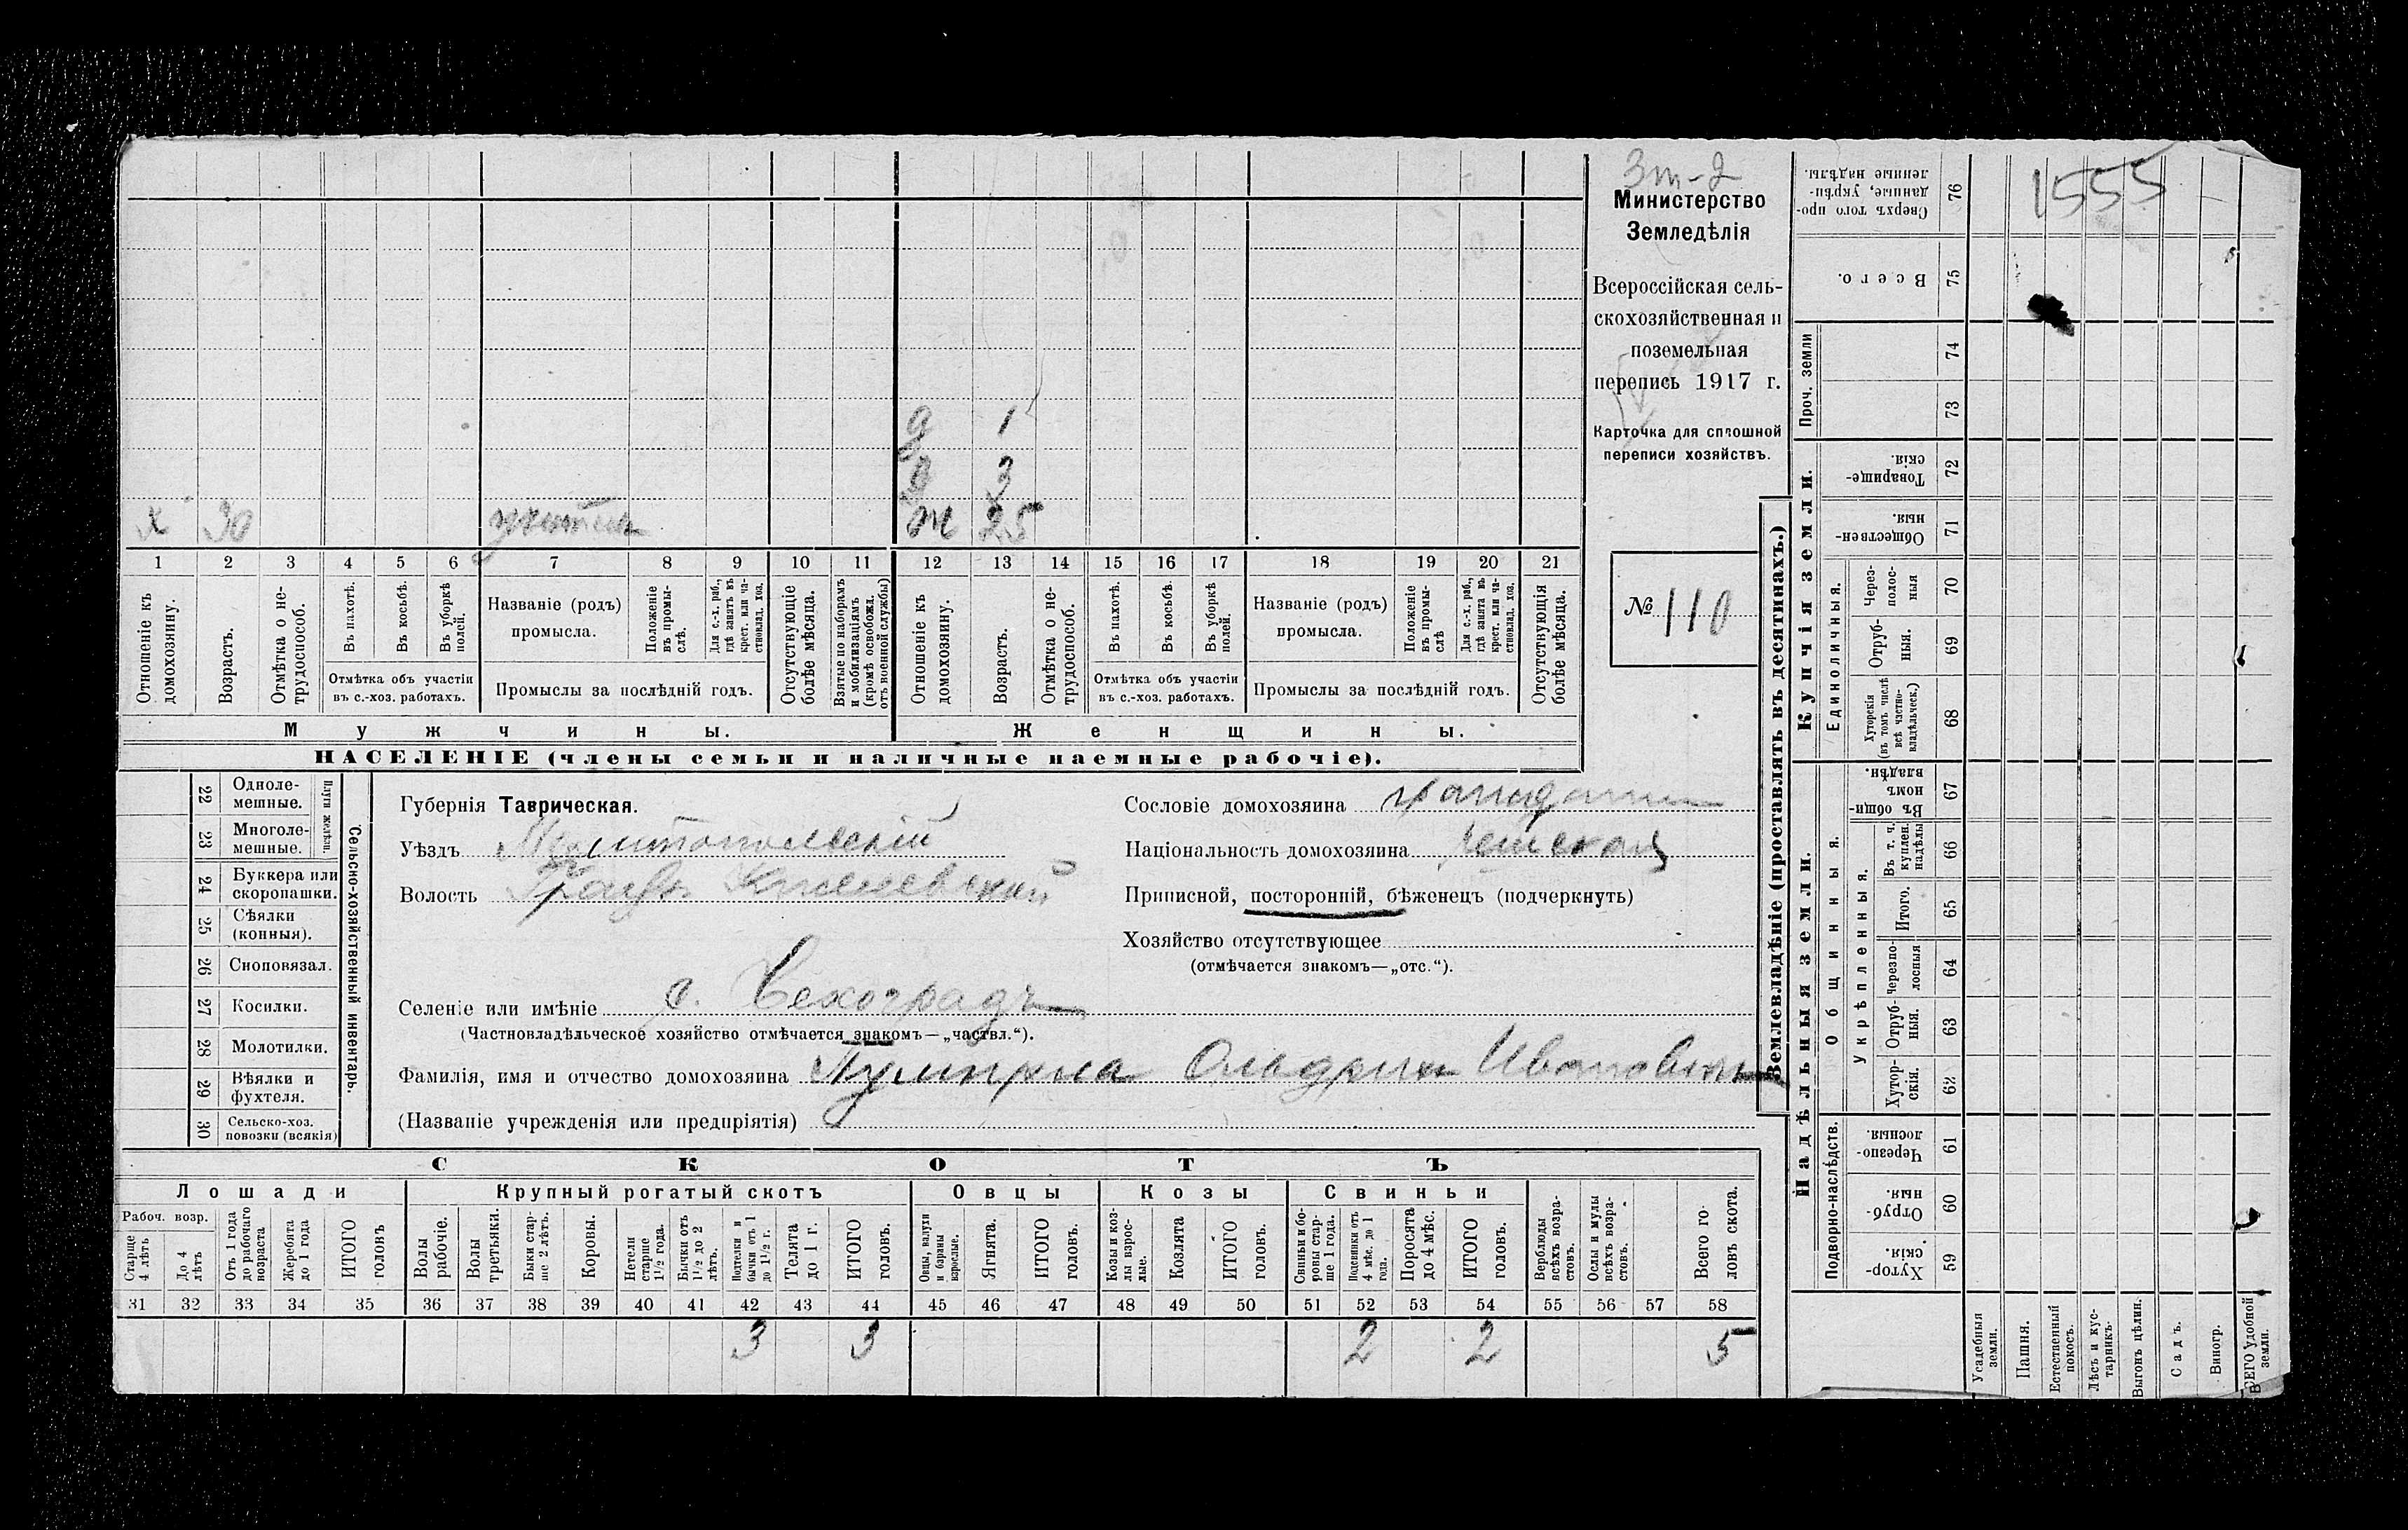 Зт-2
Министерство
Земледѣлія
Всероссійская сель-
скохозяйственная и
поземельная
перепись 1917 г.
Карточка для сплошной
переписи хозяйствъ.
№ 110
1555
д 1
д 3
х 30 учитель ж 25
1 2 3 4 5 6 7 8 9 10 11 12 13 14 15 16 17 18 19 20 21
Отношеніе къ домохозяину.
Возрастъ.
Отмѣтка о не-трудоспособ.
Въ пахотѣ.
Въ косьбѣ.
Въ уборкѣ полей.
Отмѣтка объ участіи
въ с.-хоз. работахъ.
Названіе (родъ)
промысла.
Положеніе въ промы-слѣ.
Для с.-х. раб., гдѣ занятъ въ крест. или ча-стновлад. хоз.
Промыслы за послѣдній годъ.
Отсутствующіе болѣе мѣсяца.
Взятые по наборамъ и мобилизаціямъ (кромѣ освобожд. отъ военной службы)
Отношеніе къ домохозяину.
Возрастъ.
Отмѣтка о не-трудоспособ.
Въ пахотѣ.
Въ косьбѣ.
Въ уборкѣ полей.
Отмѣтка объ участіи
въ с.-хоз. работахъ.
Названіе (родъ)
промысла.
Положеніе въ промы-слѣ
Для с.-х. раб., гдѣ занята въ крест. или ча-стновлад. хоз.
Промыслы за послѣдній годъ.
Отсутствующія болѣе мѣсяца.
Мужчины.
Женщины.
НАСЕЛЕНІЕ (члены семьи и наличные наемные рабочіе).
22 Одноле-мешные.
23 Многоле-мешные.
Плуги желѣзн.
24 Буккера или скоропашки.
25 Сѣялки (конныя).
26 Сноповязал.
27 Косилки.
28 Молотилки.
29 Вѣялки и фухтеля.
30 Сельско-хоз. повозки (всякія)
Сельско-хозяйственный инвентарь.
Губернія Таврическая.
Уѣздъ Мелитопольскій
Волость
Селеніе или имѣніе с. Чехоградъ
(Частновладѣльческое хозяйство отмѣчается знакомъ—„частвл.“).
Фамилія, имя и отчество домохозяина Ольдрих Иванович
(Названіе учрежденія или предпріятія)
Сословіе домохозяина
Національность домохозяина чешская
Приписной, посторонній, бѣженецъ (подчеркнуть)
Хозяйство отсутствующее
(отмѣчается знакомъ—„отс.“).
СКОТЪ
Лошади Крупный рогатый скотъ Овцы Козы Свиньи
Рабоч. возр.
Старше 4 лѣтъ
До 4 лѣтъ
Отъ 1 года до рабочаго возраста
Жеребята до 1 года
ИТОГО головъ
Волы рабочіе.
Волы третьяки.
Быки стар-ше 2 лѣтъ.
Коровы.
Нетели старше 1½ года.
Бычки отъ 1½ до 2 лѣтъ.
Подтелки и бычки отъ 1 до 1½ г.
Телята до 1 г.
ИТОГО головъ.
Овцы, валухи и бараны взрослые.
Ягнята.
ИТОГО головъ.
Козы и коз-лы взрос-лые.
Козлята
ИТОГО головъ.
Свиньи и бо-ровы стар-ше 1 года.
Подсвинки отъ 4 мѣс. до 1 года.
Поросята до 4 мѣс.
ИТОГО головъ.
Верблюды всѣхъ возра-стовъ.
Ослы и мулы всѣхъ возра-стовъ.
Всего го-ловъ скота.
31 32 33 34 35 36 37 38 39 40 41 42 43 44 45 46 47 48 49 50 51 52 53 54 55 56 57 58
3 3 2 2 5
Землевладѣніе (проставлять въ десятинахъ.)
Купчія земли.
Надѣльныя земли.
Сверхъ того про-данные, укрѣп-ленные надѣлы. 76
Всего. 75
Проч. земли 74 73
Товарище-скія. 72
Обществен-ныя. 71
Единоличныя.
Черезполос-ныя 70
Отруб-ныя. 69
Хуторскія (въ томъ числѣ всѣ частно-владѣльческ.) 68
Общинныя.
Въ общин-номъ владѣн. 67
Укрѣпленныя.
Въ т. ч. куплен. надѣлы 66
Итого. 65
Черезпо-лосныя 64
Отруб-ныя. 63
Хутор-скія. 62
Подворно-наслѣдств.
Черезпо-лосныя. 61
Отруб-ныя. 60
Хутор-скія. 59
Усадебныя земли.
Пашня.
Естественный покосъ.
Лѣсъ и кус-тарникъ.
Выгонъ цѣлин.
Садъ.
Виногр.
ВСЕГО удобной земли.